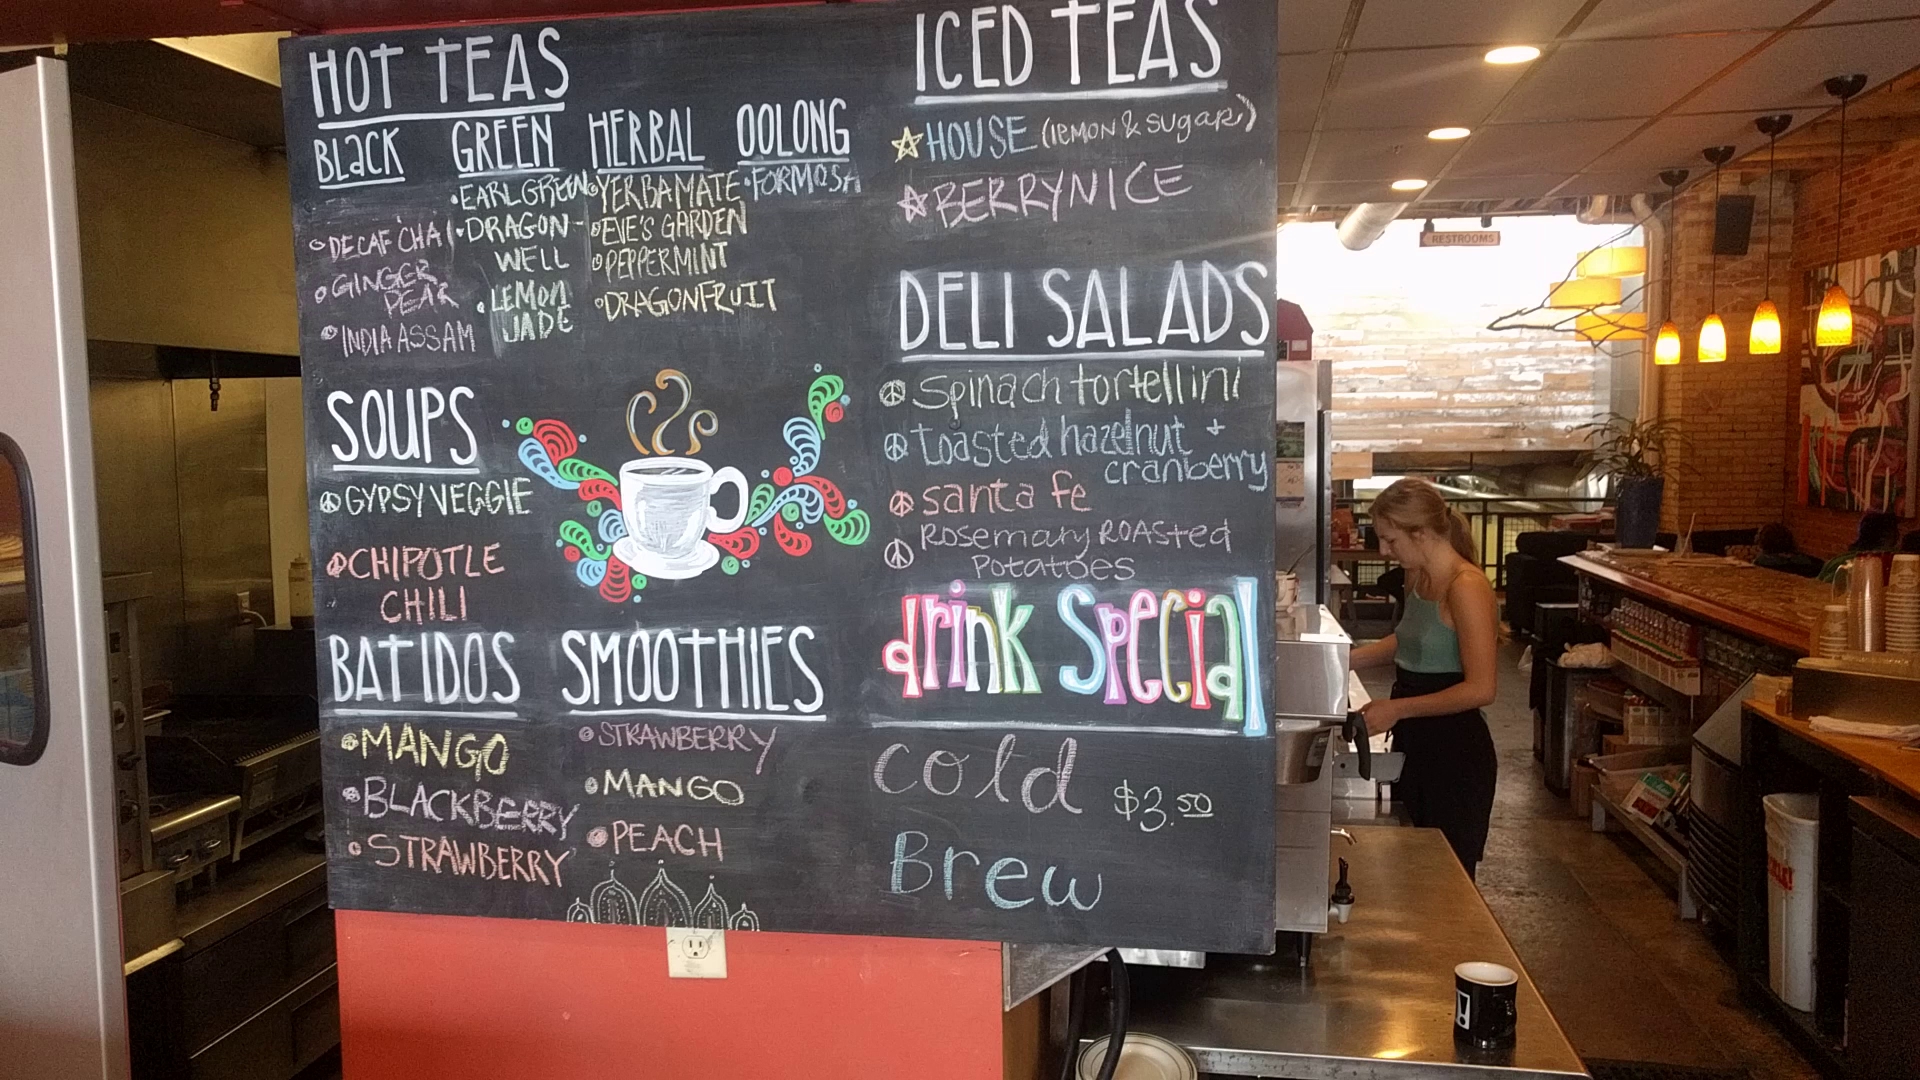 HOT TEAS
BLACK
DECAF CHAI
GINGER
PEAR
INDIA ASSAM
GREEN
EARL GREEN
DRAGON-
WELL
LEMON
JADE
HERBAL
YERBA MATE
EVE'S GARDEN
PEPPERMINT
DRAGONFRUIT
OOLONG
FORMOSA
SOUPS
GYPSY VEGGIE
CHIPOTLE
CHILI
BATIDOS
MANGO
BLACKBERRY
STRAWBERRY
SMOOTHIES
STRAWBERRY
MANGO
PEACH
ICED TEAS
HOUSE (lemon & sugar)
BERRYNICE
DELI SALADS
Spinach tortellini
toasted hazelnut +
cranberry
santa fe
Rosemary ROASted
Potatoes
drink Special
cold $3.50
Brew
RESTROOMS